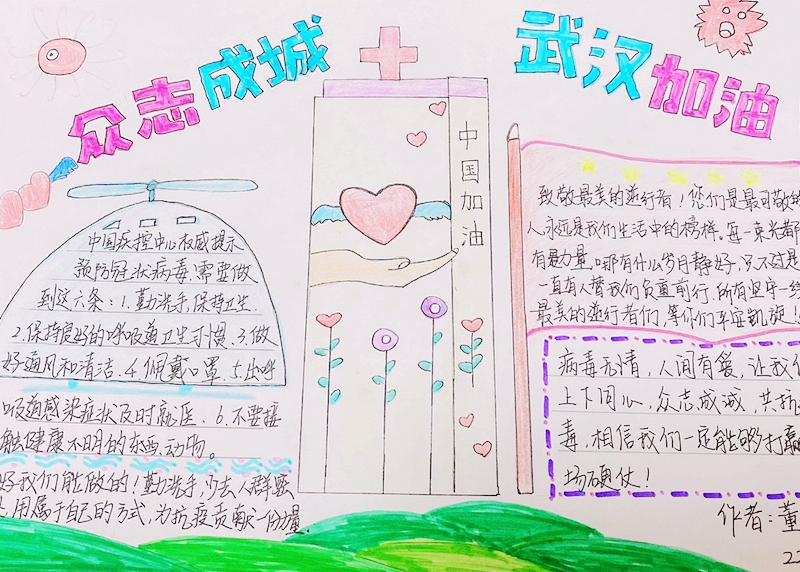 众志成城
武汉加油
中国加油
中国疾控中心权威提示
预防冠状病毒,需要做
到这六条:1.勤洗手,保持卫生.
2.保持良好的呼吸道卫生习惯.3.做
好通风和清洁.4.佩戴口罩.5.出呼
吸道感染症状及时就医.6.不要接
触健康不明的东西,动物。
好我们能做的!勤洗手,少去人群聚
用属于自己的方式,为抗疫贡献一份力量.
致敬最美的逆行者!您们是最可敬的
人,永远是我们生活中的榜样。每一束光都
有最力量,哪有什么岁月静好,只不过是
一直有人替我们负重前行.所有坚守一线
最美的逆行者们,等你们平安凯旋!
病毒无情,人间有爱.让我们
上下同心,众志成诚,共抗
毒,相信我们一定能够打赢
场硬仗!
作者:董